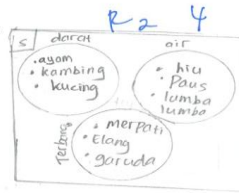 R2 4
S darat air
• ayam
• kambing
• kucing
• hiu
• Paus
• lumba
lumba
Terbang
• merpati
• Elang
• garuda